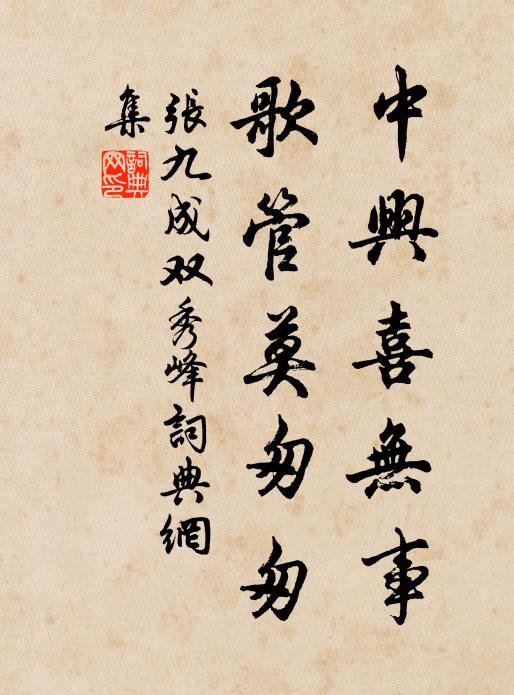 中興喜無事
歌管莫匆匆
張九成双秀峰詞典網
集
詞典
网印